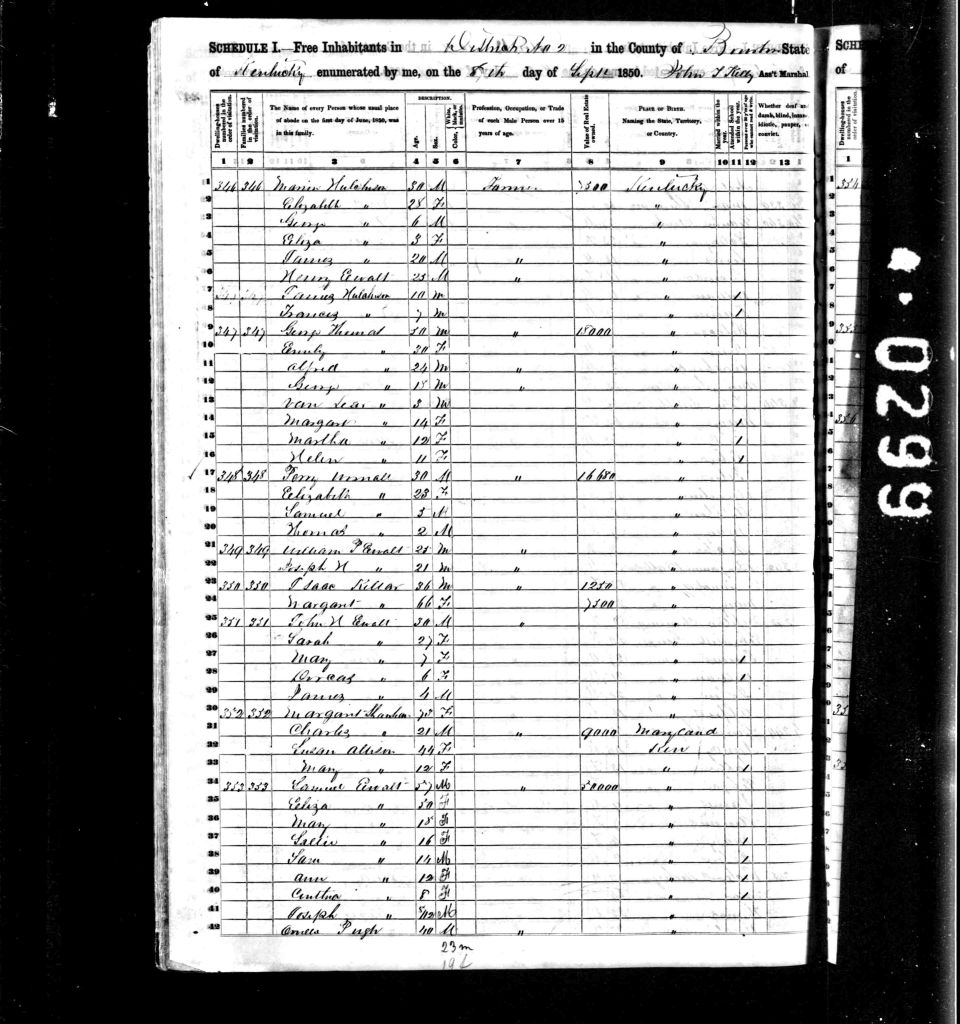 SCHEDULE I.—Free Inhabitants in District No 2 in the County of Bourbon State
of Kentucky enumerated by me, on the 8th day of Sept 1850. John T Ass't Marshal
Dwelling-houses numbered in the order of visitation.
Families numbered in the order of visitation.
The Name of every Person whose usual place of abode on the first day of June, 1850, was in this family.
DESCRIPTION.
Age.
Sex.
Color, White, black, or mulatto.
Profession, Occupation, or Trade of each Male Person over 15 years of age.
Value of Real Estate owned.
PLACE OF BIRTH. Naming the State, Territory, or Country.
Married within the year.
Attended School within the year.
Persons over 20 y'rs of age who cannot read & write.
Whether deaf and dumb, blind, insane, idiotic, pauper, or convict.
1 2 3 4 5 6 7 8 9 10 11 12 13
1 346 346 Hutchison 30 M Farmer 7500 Kentucky
2 Elizabeth " 28 F "
3 George " 6 M "
4 Eliza " 3 F "
5 James " 20 M " "
6 Henry Ewalt 25 M " "
7 James Hutchison 10 M " 1
8 Frances " 7 M " 1
9 347 347 George Thomas 50 M " 18000 "
10 Emily " 30 F "
11 Alfred " 24 M " "
12 George " 18 M " "
13 Van Lear " 3 M "
14 Margaret " 14 F " 1
15 Martha " 12 F " 1
16 Helen " 11 F " 1
17 348 348 Perry 30 M " 16680 "
18 Elizabeth " 23 F "
19 Samuel " 3 M "
20 Thomas " 2 M "
21 349 349 William P Ewalt 25 M " "
22 Joseph H " 21 M " "
23 350 350 Isaac Kellar 36 M " 1250 "
24 Margaret " 66 F 7500 "
25 351 351 John H Ewalt 30 M " "
26 Sarah " 27 F "
27 Mary " 7 F " 1
28 Dorcas " 6 F " 1
29 James " 4 M "
30 352 352 Margaret 73 F "
31 Charles " 21 M " 9000 Maryland
32 Susan Allison 44 F Ken
33 Mary " 12 F " 1
34 353 353 Samuel Ewalt 57 M " 50000 "
35 Eliza " 50 F "
36 Mary " 18 F "
37 Sallie " 16 F " 1
38 Sam " 14 M " 1
39 Ann " 12 F " 1
40 " 8 F " 1
41 Joseph " /12 M "
42 Pugh 40 M " "
23 m
19 f
SCHE
of
Dwelling-houses numbered in the order of visitation.
1
1
2
3
4
5
6
7
8
9
10
11
12
13
14
15
16
17
18
19
20
21
22
23
24
25
26
27
28
29
30
31
32
33
34
35
36
37
38
39
40
41
42
0299